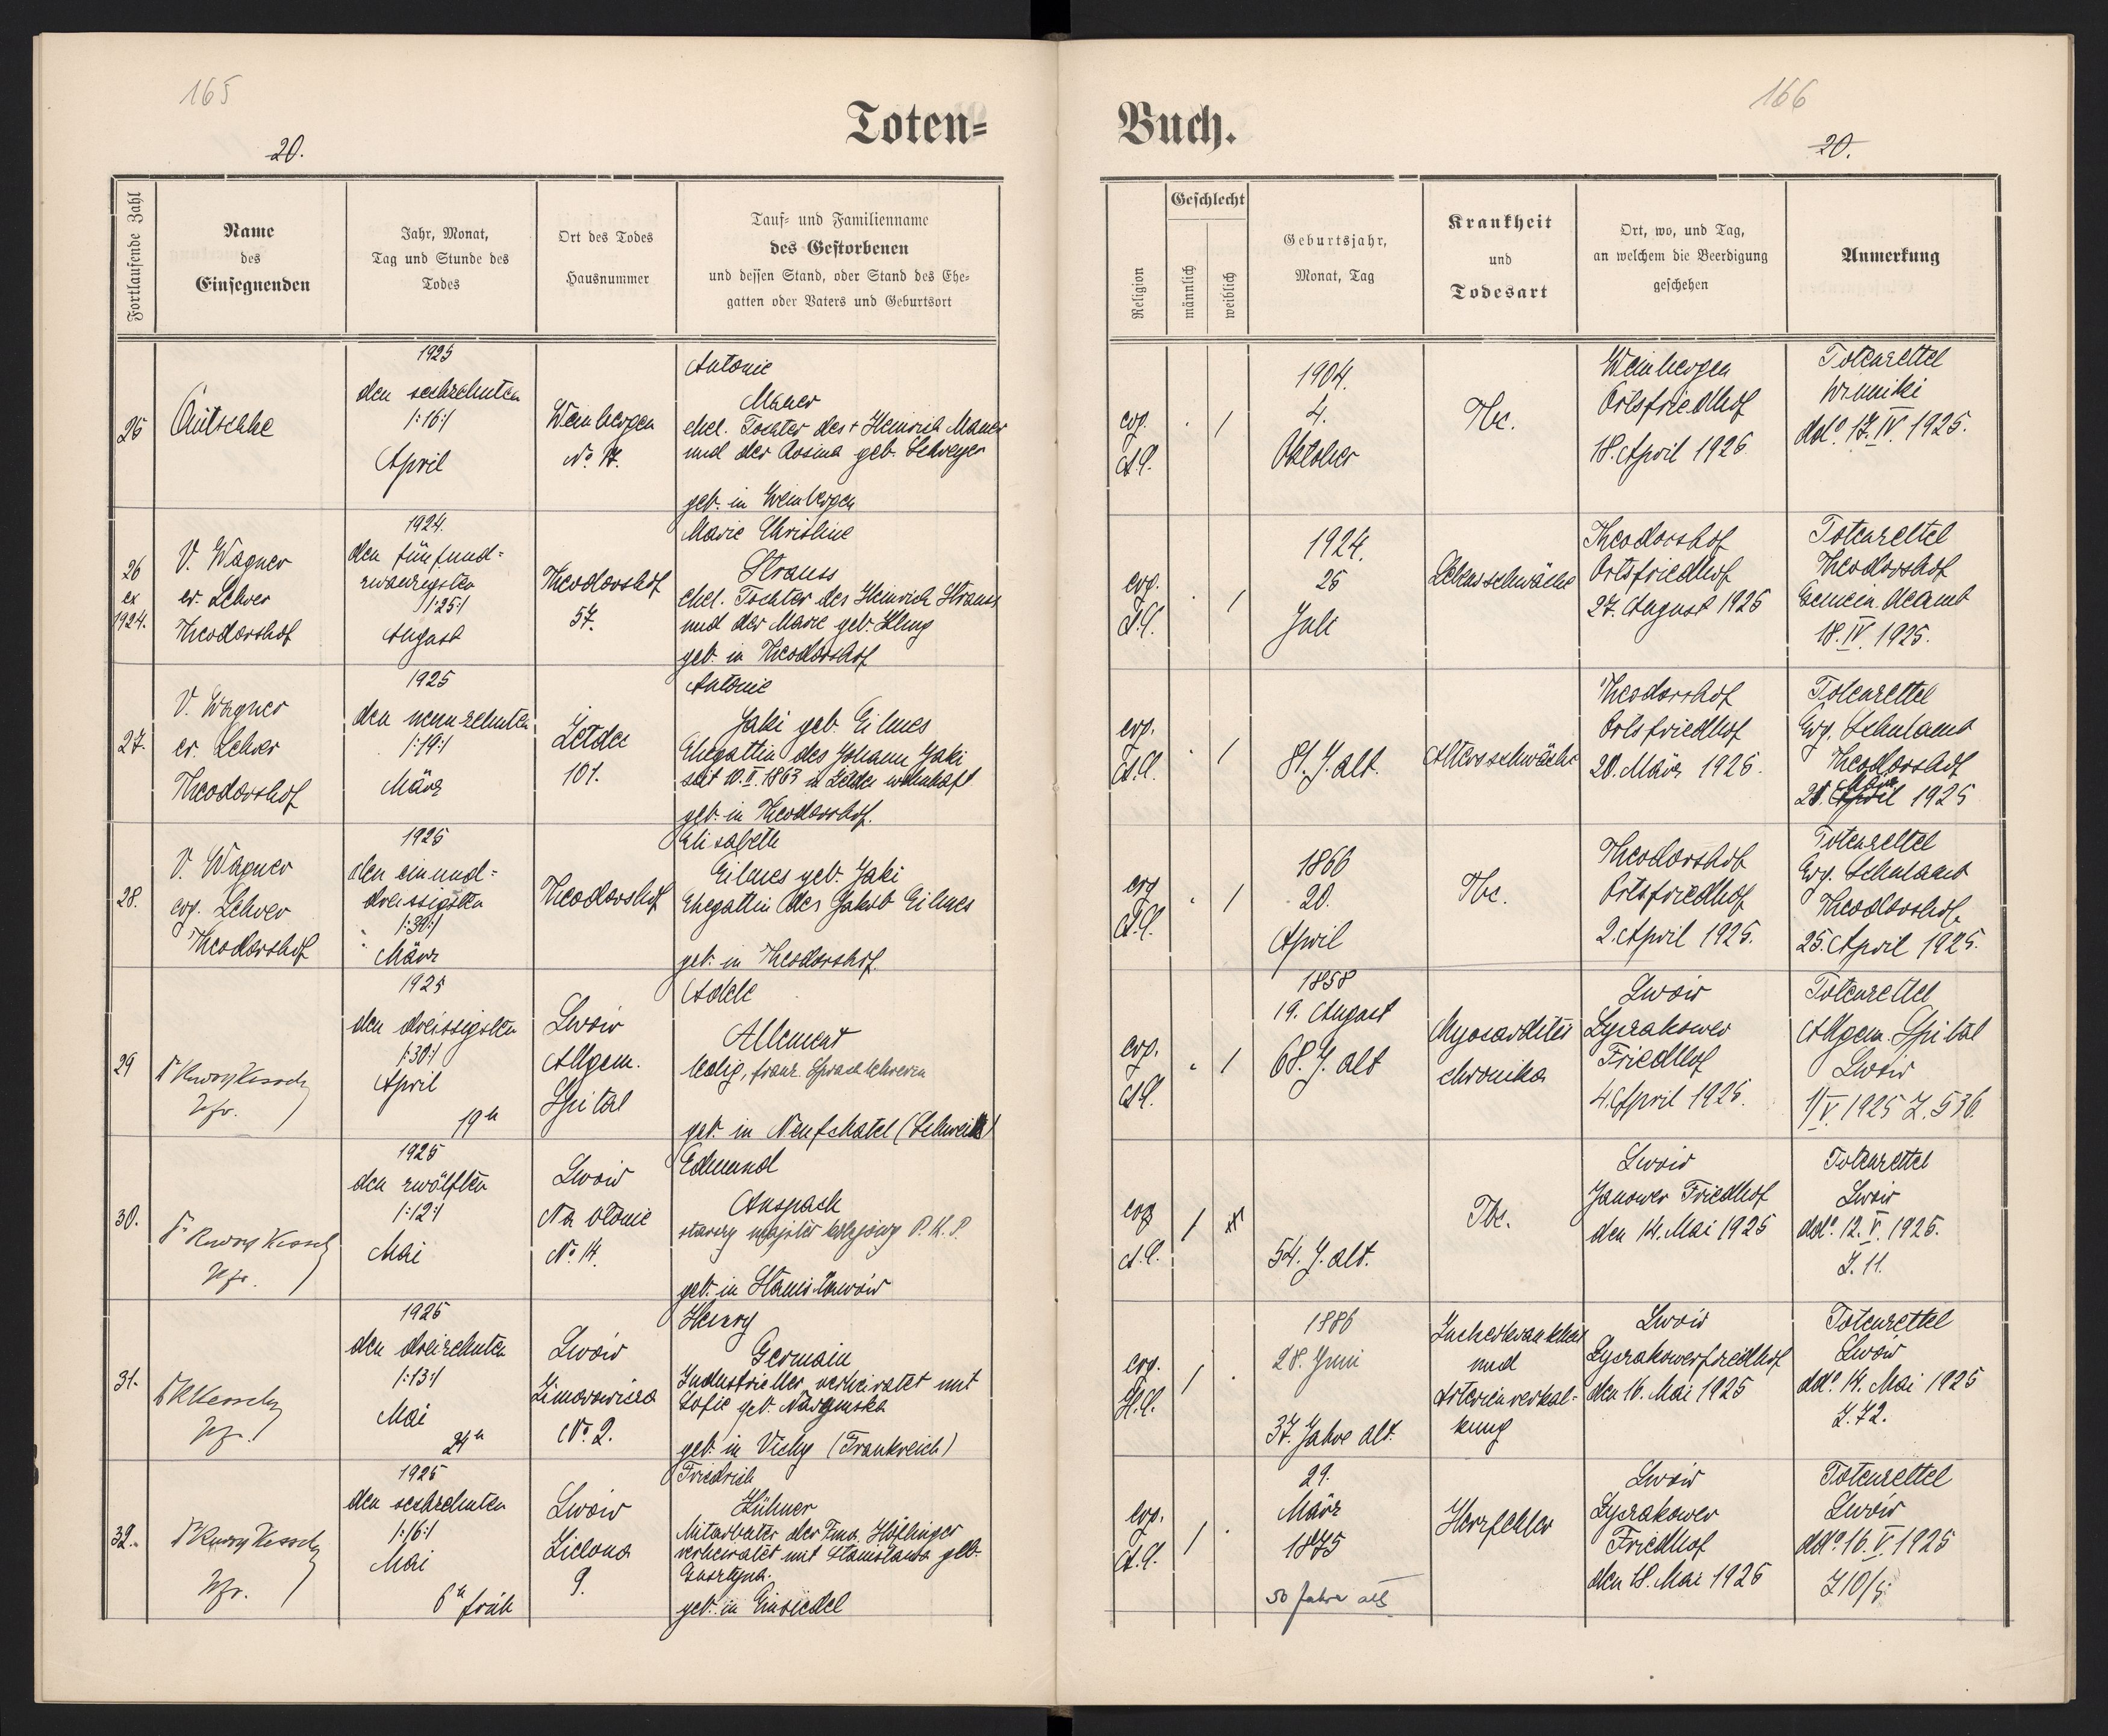 165
20.
Toten=
Fortlaufende Zahl
Name
des
Einsegnenden
Jahr, Monat,
Tag und Stunde des
Todes
Ort des Todes
Hausnummer
Tauf= und Familienname
des Gestorbenen
und dessen Stand, oder Stand des Ehe=
gatten oder Vaters und Geburtsort
25
1925
den sechzehnten
/:16:/
April
Weinbergen
No 17.
Antonie
Mauer
ehel. Tochter des + Heinrich Mauer
und der Rosina geb. Schweyer
geb. in Weinbergen
26
ex
1924.
V. Wagner
ev. Lehrer
Theodorshof
1924.
den fünfund=
zwanzigsten
/:25:/
August
Theodorshof
57.
Marie Christine
Strauss
ehel. Tochter des Heinrich Strauss
und der Marie geb. Kling
geb. in Theodorshof
27.
V. Wagner
ev. Lehrer
Theodorshof
1925
den neunzehnten
/:19:/
März
Żeldec
101.
Antonie
Jaki geb. Eilmes
Ehegattin des Johann Jaki
seit 10.II.1863 in Żeldec wohnhaft
geb. in Theodorshof.
28.
V. Wagner
evg. Lehrer
Theodorshof
1925
den einund=
dreissigsten
März
Theodorshof
Elisabeth
Eilmes geb. Jaki
Ehegattin des Jakob Eilmes
geb. in Theodorshof.
29
Dr Kesselring
Pfr.
1925
den dreissigsten
/:30:/
April
19h
Lwów
Allgem.
Spital
Adele
Allemand
ledig, franz. Sprachlehrerin
geb. in Neufchatel (Schweitz)
30.
Dr Kesselring
Pfr.
1925
den zwölften
/:12:/
Mai
Lwów
Na błonie
No. 14.
Edmund
Anspach
starszy majster kolejowy P.K.P.
geb. in Stanisławów
31.
Dr Kesselring
Pfr.
1925
den dreizehnten
/:13:/
Mai
24h
Lwów
Zimorowicza
No. 2.
Henry
Germain
Industrieller verheiratet mit
Sofie geb.
geb. in Vichy (Frankreich)
32.
Dr Kesselring
Pfr.
1925
den sechzehnten
/:16:/
Mai
6h früh
Lwów
Zielona
9.
Friedrich
Hühner
Mitarbeiter der Fma. Höflinger
verheiratet mit Stanisława geb.
geb. in Einsiedel
166
20.
Buch.
Religion
Geschlecht
männlich
weiblich
Geburtsjahr,
Monat, Tag
Krankheit
und
Todesart
Ort, wo, und Tag,
an welchem die Beerdigung
geschehen
Anmerkung
evg.
A.C.
/
1904.
4.
Oktober
Tbc.
Weinbergen
Ortsfriedhof
18. April 1925
Totenzettel
Winniki
ddo. 17.IV.1925.
evg.
A.C.
/
1924.
25
Juli
Lebensschwäche
Theodorshof
Ortsfriedhof
27. August 1925
Totenzettel
Theodorshof
Gemeindeamt
18.IV.1925.
evg.
A.C.
/
81. J. alt.
Altersschwäche
Theodorshof
Ortsfriedhof
20. März 1925.
Totenzettel
Evg. Schulamt
Theodorshof
März
21. April 1925
evg
A.C.
/
1866
20.
April
Tbc.
Theodorshof
Ortsfriedhof
2. April 1925.
Totenzettel
Evg. Schulamt
Theodorshof.
25. April 1925.
evg.
A.C.
/
1858
19. August
68. J. alt
Myocarditis
chronika
Lwów
Łyczakower
Friedhof
4. April 1925.
Totenzettel
Allgem. Spital
Lwów
1/V.1925 Z.536.
evg
A.C.
/
54. J. alt.
Tbc.
Lwów
Janower Friedhof
den 14. Mai 1925
Totenzettel
Lwów
ddo. 12.V.1925.
Z. 11.
evg.
H.C.
/
1886
28. Juni
37. Jahre alt.
Zuckerkrankheit
und
Arterienverkal-
kung
Lwów
Łyczakowerfriedhof
den 16. Mai 1925
Totenzettel
Lwów
ddo. 14. Mai 1925
Z. 72.
evg.
A.C.
/
29.
März
1875
50 Jahre alt
Herzfehler
Lwów
Łyczakower
Friedhof
den 18. Mai 1925
Totenzettel
Lwów
ddo. 16.V.1925